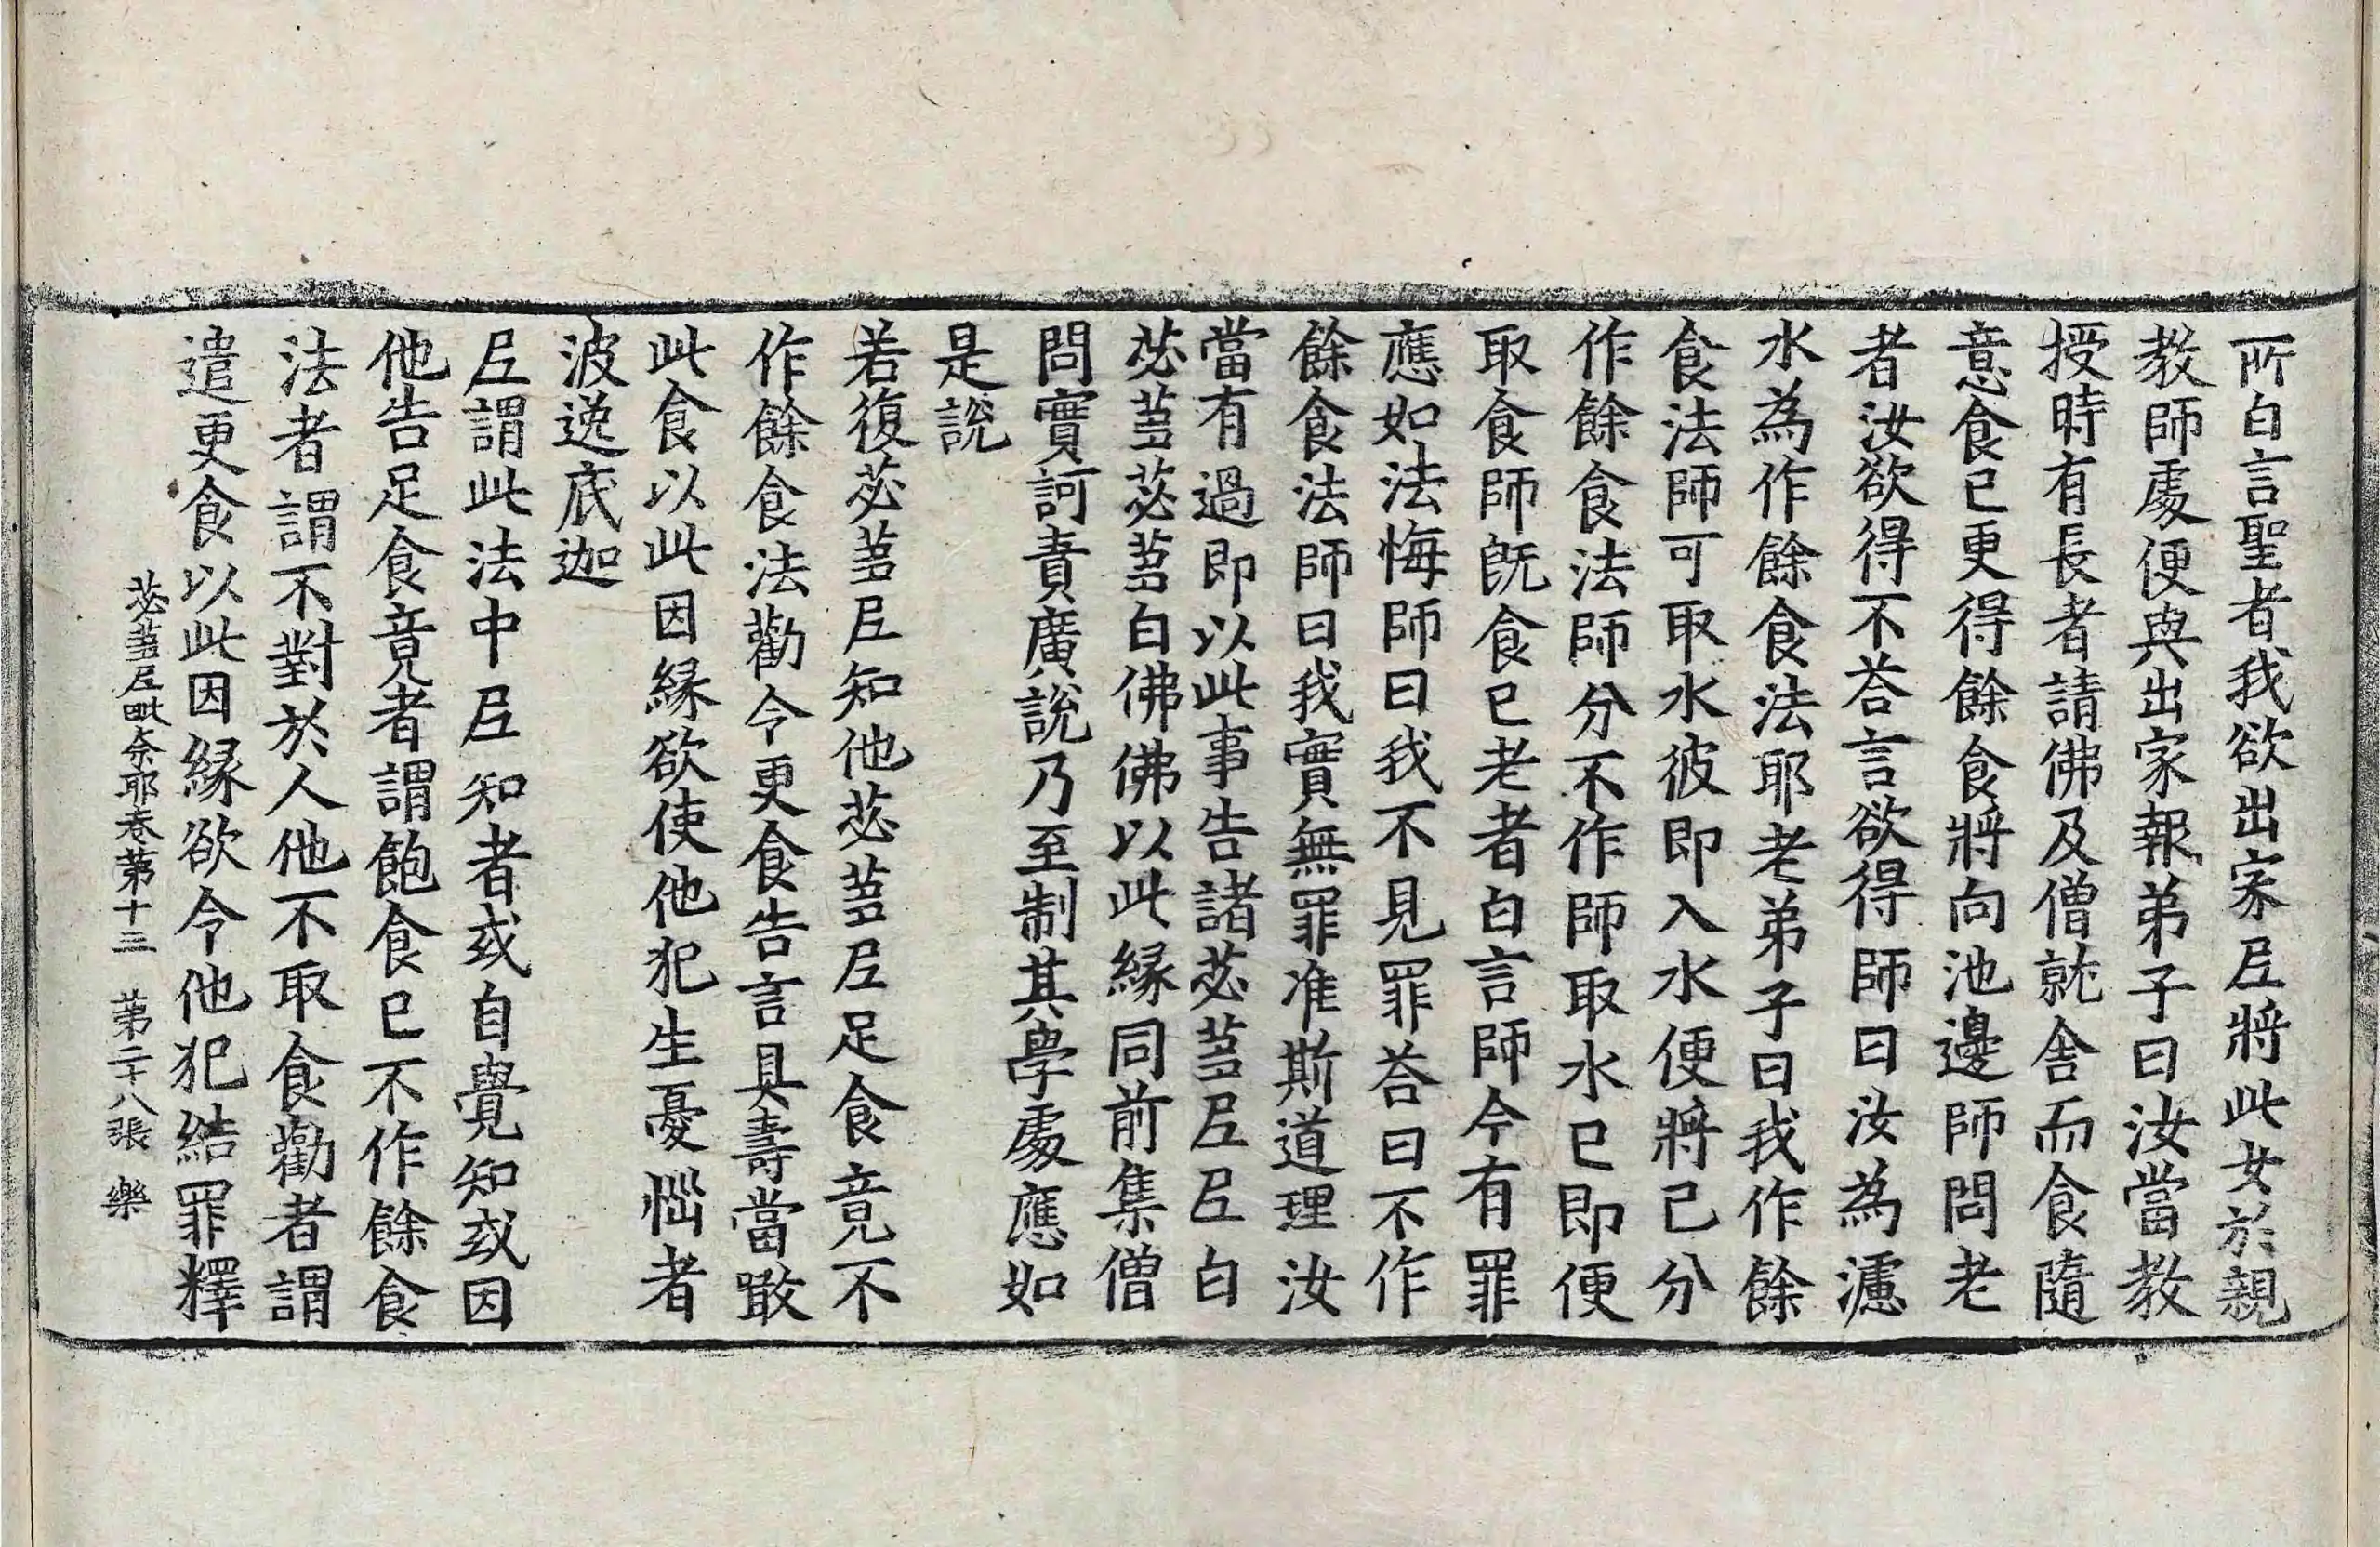 所白言聖者我欲出家尼將此女於親
教師處便與出家報弟子曰汝當教
授時有長者請佛及僧就舍而食隨
意食已更得餘食將向池邊師問老
者汝欲得不荅言欲得師曰汝為濾
水為作餘食法耶老弟子曰我作餘
食法師可取水彼即入水便將己分
作餘食法師分不作師取水已即便
取食師既食已老者白言師今有罪
應如法悔師曰我不見罪荅曰不作
餘食法師曰我實無罪准斯道理汝
當有過即以此事告諸苾蒭尼尼白
苾蒭苾蒭白佛佛以此緣同前集僧
問實訶責廣說乃至制其學處應如
是說
若復苾蒭尼知他苾蒭尼足食竟不
作餘食法勸令更食告言具壽當噉
此食以此因緣欲使他犯生憂惱者
波逸底迦
尼謂此法中尼知者或自覺知或因
他告足食竟者謂飽食已不作餘食
法者謂不對於人他不取食勸者謂
遣更食以此因緣欲令他犯結罪釋
苾蒭尼毗奈耶卷第十三 第二十八張 樂